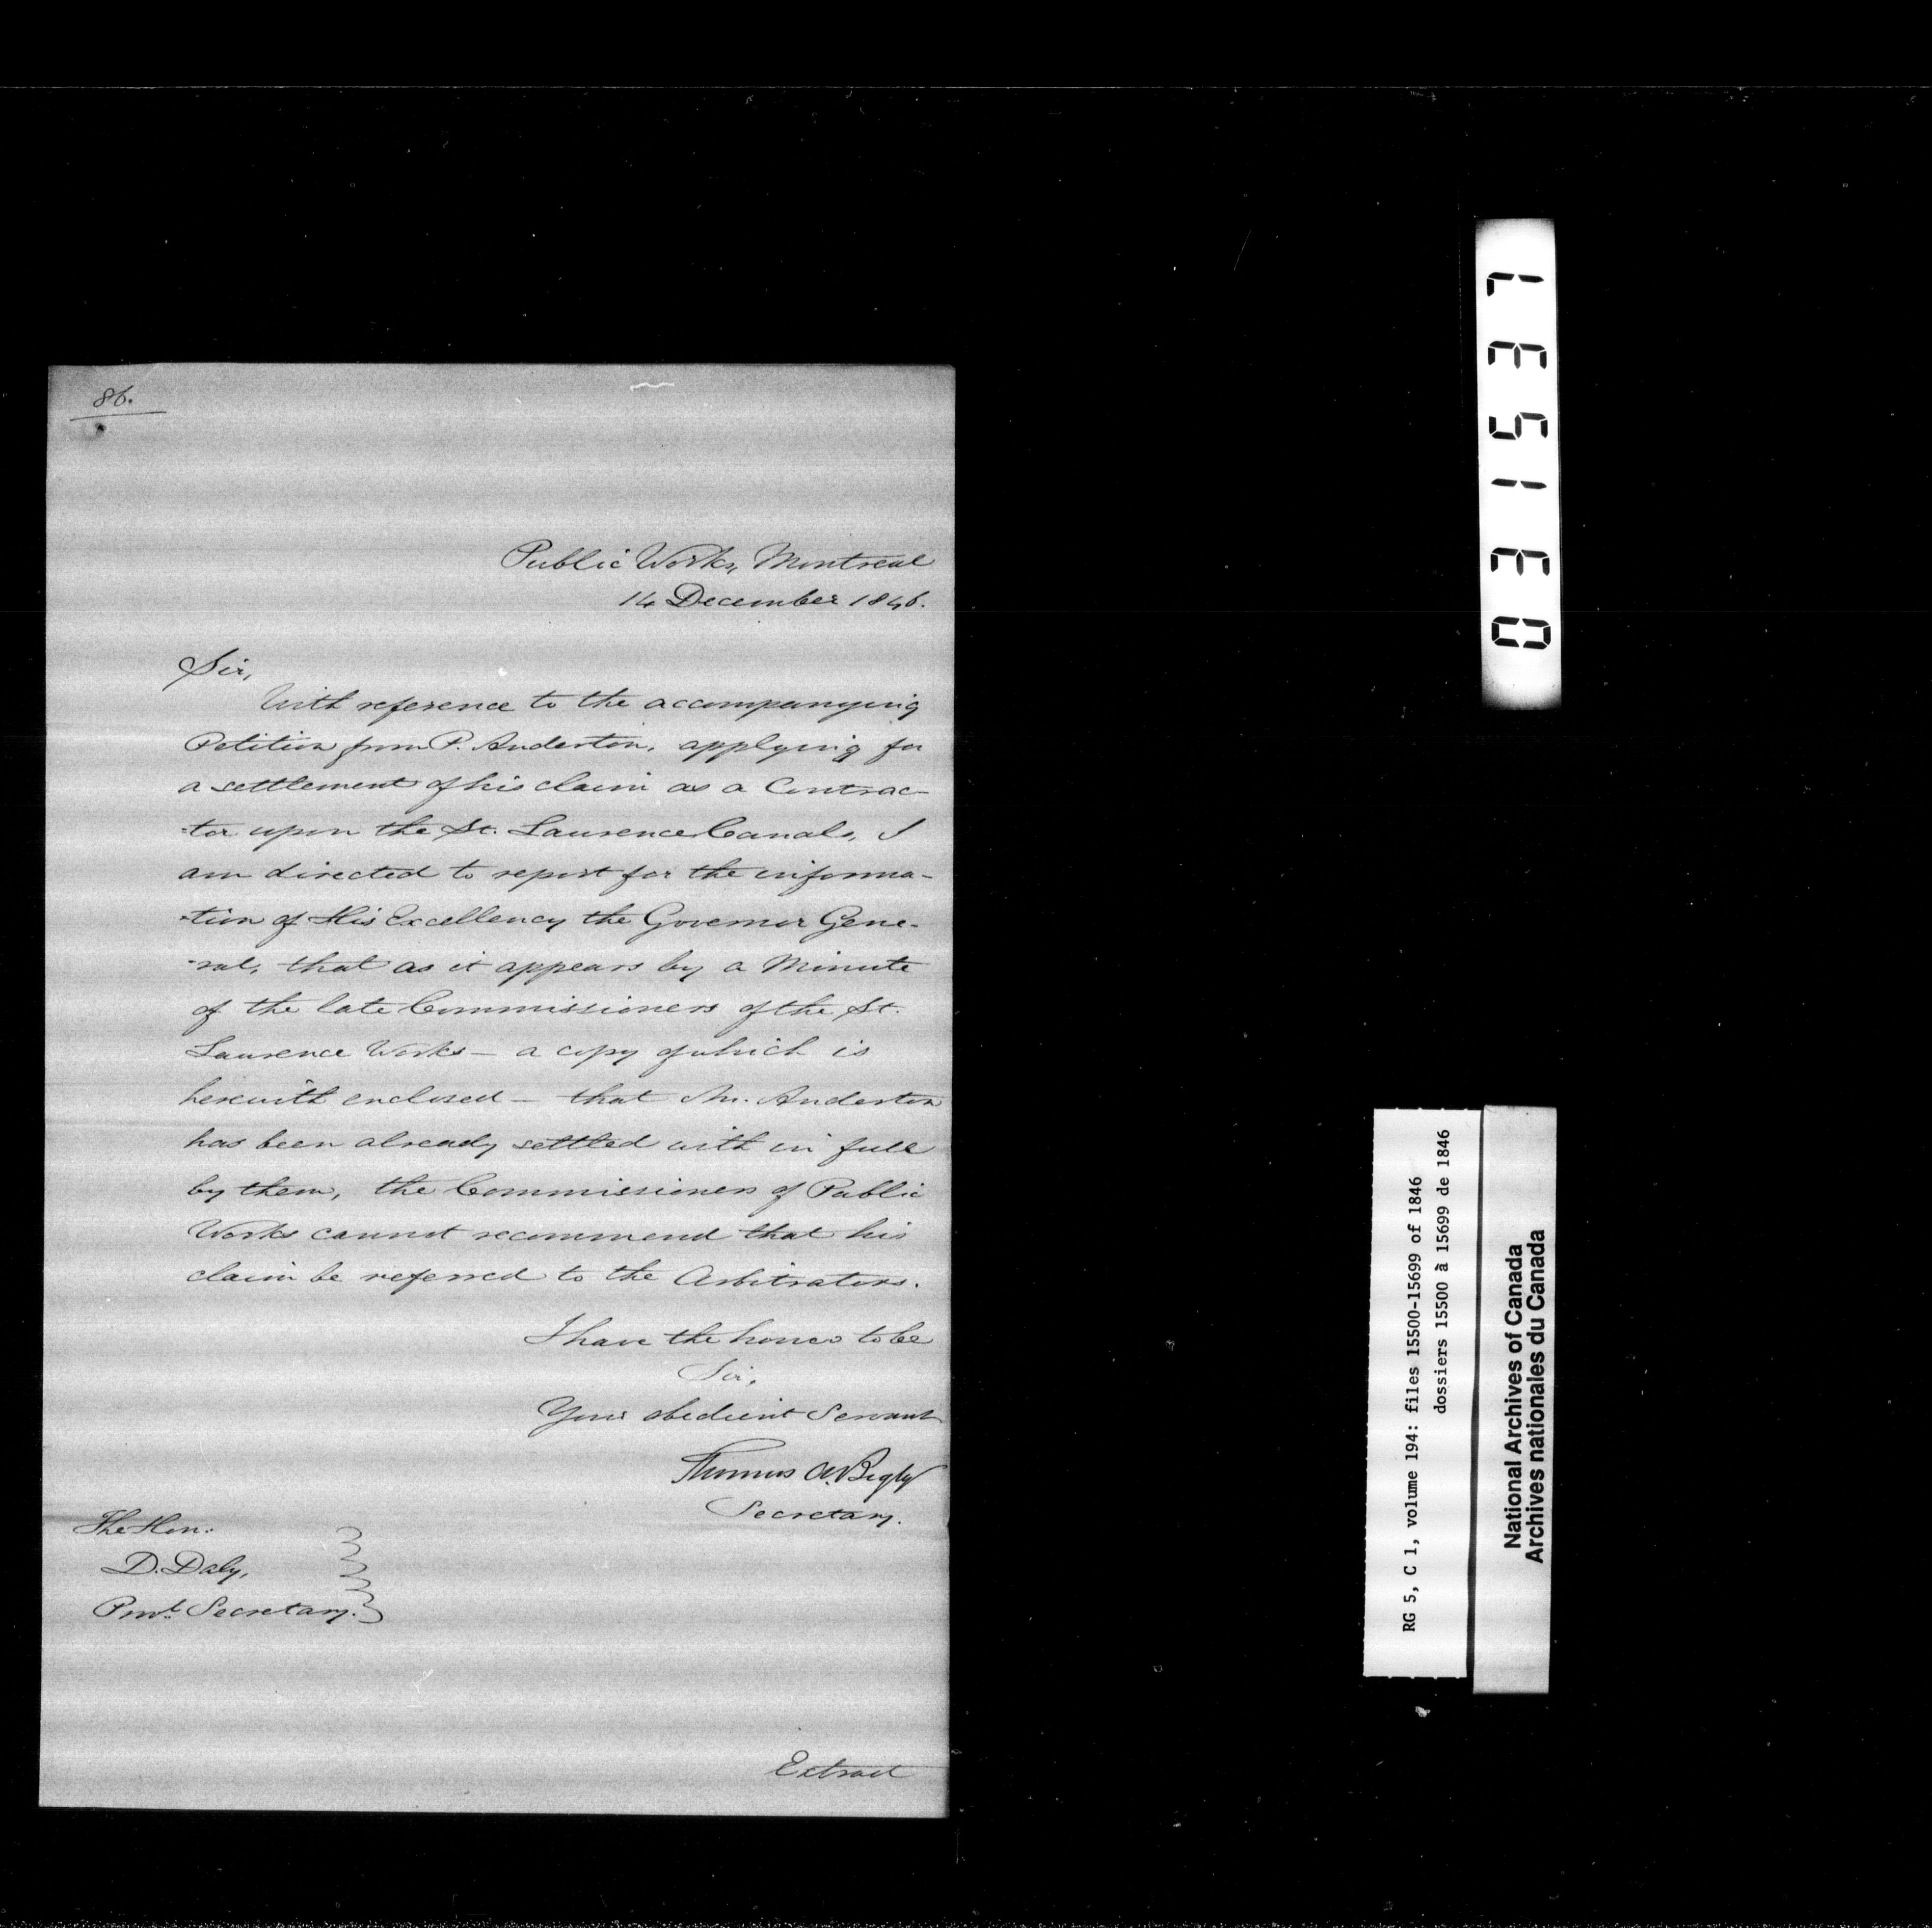 86.
Public Works, Montreal
14 December 1846.
Sir,
With reference to the accompanying
Petition from P. Anderton, applying for
a settlement of his claim as a Contrac-
-tor upon the St. Laurence Canals, I
am directed to report for the informa-
-tion of His Excellency the Governor Gene-
-ral, that as it appears by a Minute
of the late Commissioners of the St.
Laurence Works - a copy of which is
herewith enclosed - that Mr. Anderton
has been already settled with in full
by them, the Commissioners of Public
Works cannot recommend that his
claim be referred to the Arbitrators.
I have the honor to be
Sir,
Your obedient Servant
Thomas A. Begly
Secretary.
The Hon:
D. Daly,
Provl. Secretary.
Extract
031537
RG 5, C 1, volume 194: files 15500-15699 of 1846
dossiers 15500 à 15699 de 1846
National Archives of Canada
Archives nationales du Canada